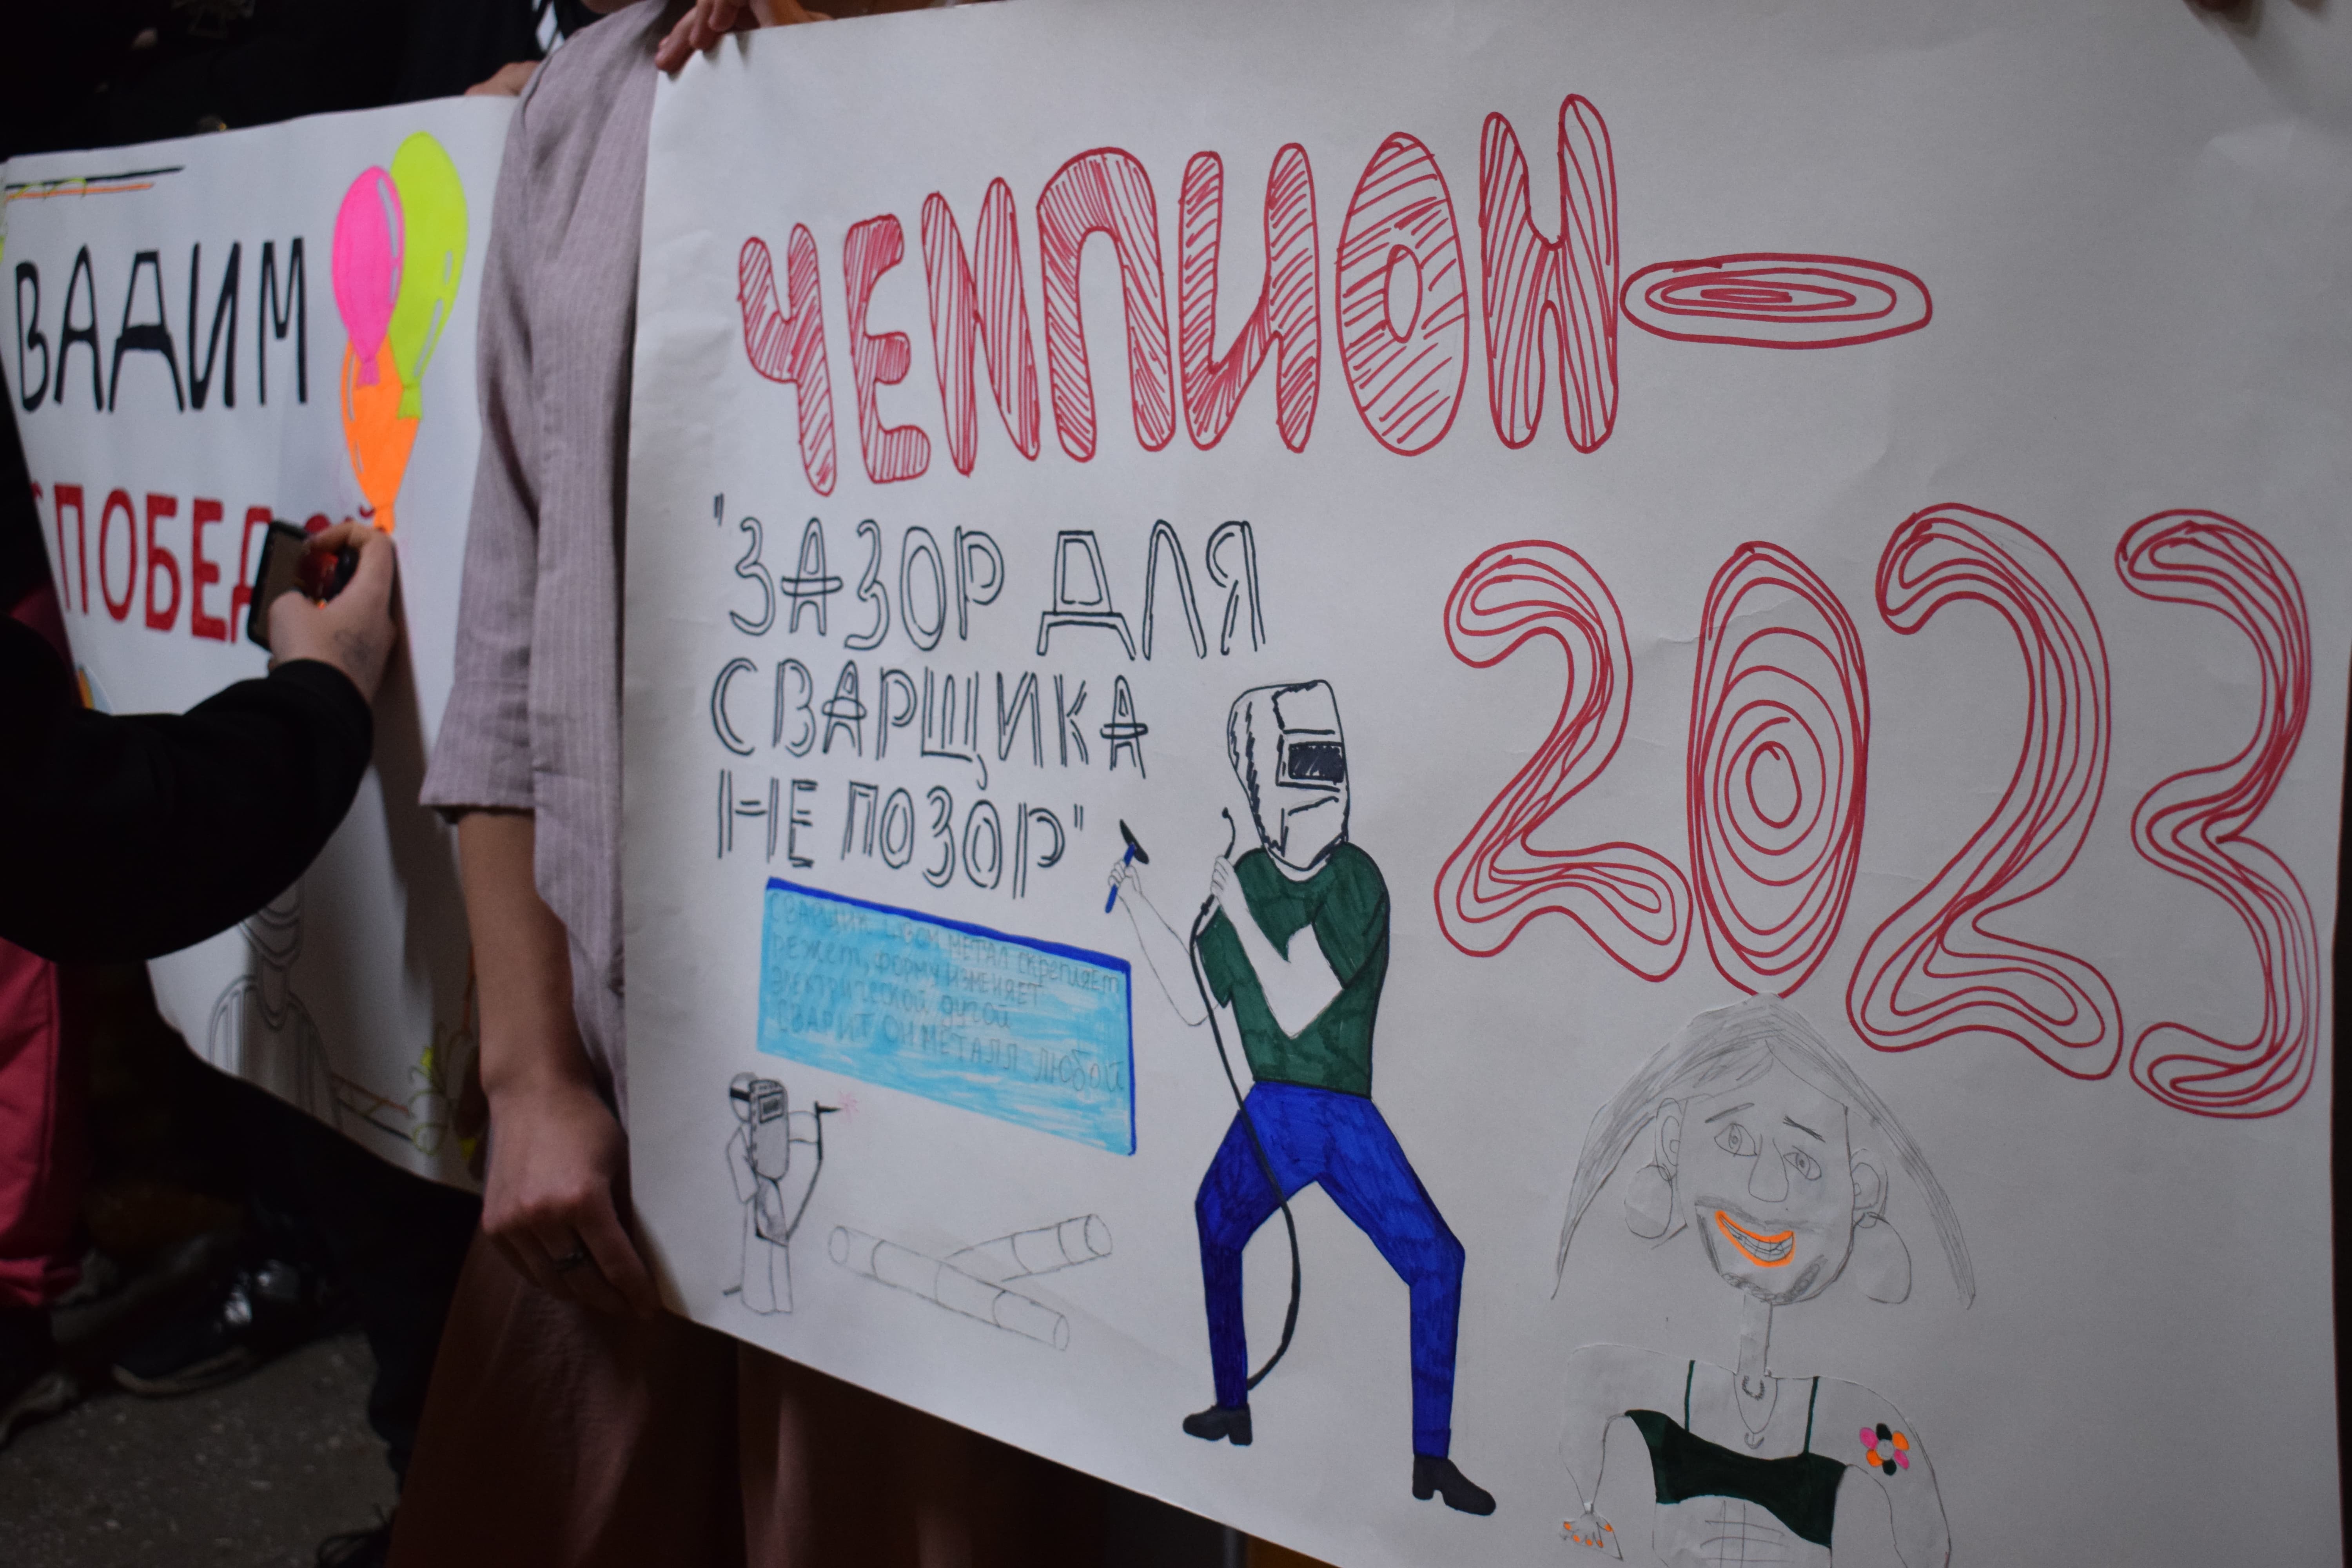 ВАДИМ
ЧЕМПИОН-
2023
"ЗАЗОР ДЛЯ
СВАРЩИКА
НЕ ПОЗОР"
СВАРЩИК ШВОМ МЕТАЛ СКРЕПЛЯЕТ
РЕЖЕТ, ФОРМУ ИЗМЕНЯЕТ
ЭЛЕКТРИЧЕСКОЙ ДУГОЙ
СВАРИТ ОН МЕТАЛЛ ЛЮБОЙ